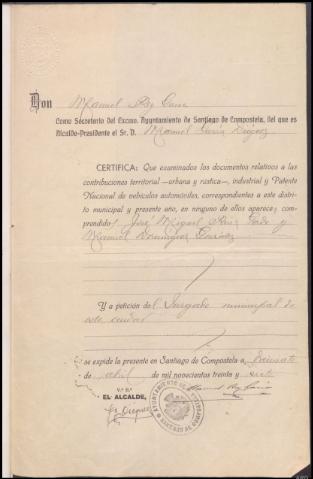 Don Manuel Rey
Como Secretario del Excmo. Ayuntamiento de Santiago de Compostela, del que es
Alcalde-Presidente el Sr. D. Manuel García Diéguez
CERTIFICA: Que examinados los documentos relativos a las
contribuciones territorial —urbana y rústica—, industrial y Patente
Nacional de vehículos automóviles, correspondientes a este distri-
to municipal y presente año, en ninguno de ellos aparecen com-
prendidos José Miguel y
Manuel Domínguez
Y a petición del Juzgado municipal de
esta ciudad
se expide la presente en Santiago de Compostela a
de abril de mil novecientos treinta y siete
V.º B.º
EL ALCALDE,
AYUNTAMIENTO DE
SANTIAGO DE COMPOSTELA